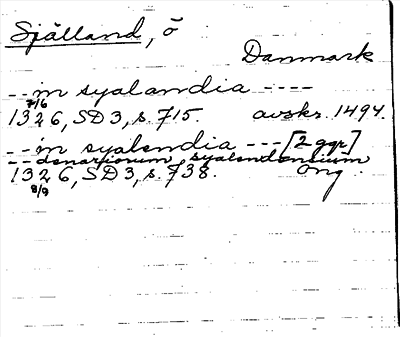 Själland, ö
Danmark
-- in syalandia ----
7/6
1326, SD3, s. 715. avskr. 1494.
-- in syalendia --- [2 ggr]
-- denariorum syalendensium
1326, SD3, s. 738. orig.
8/9